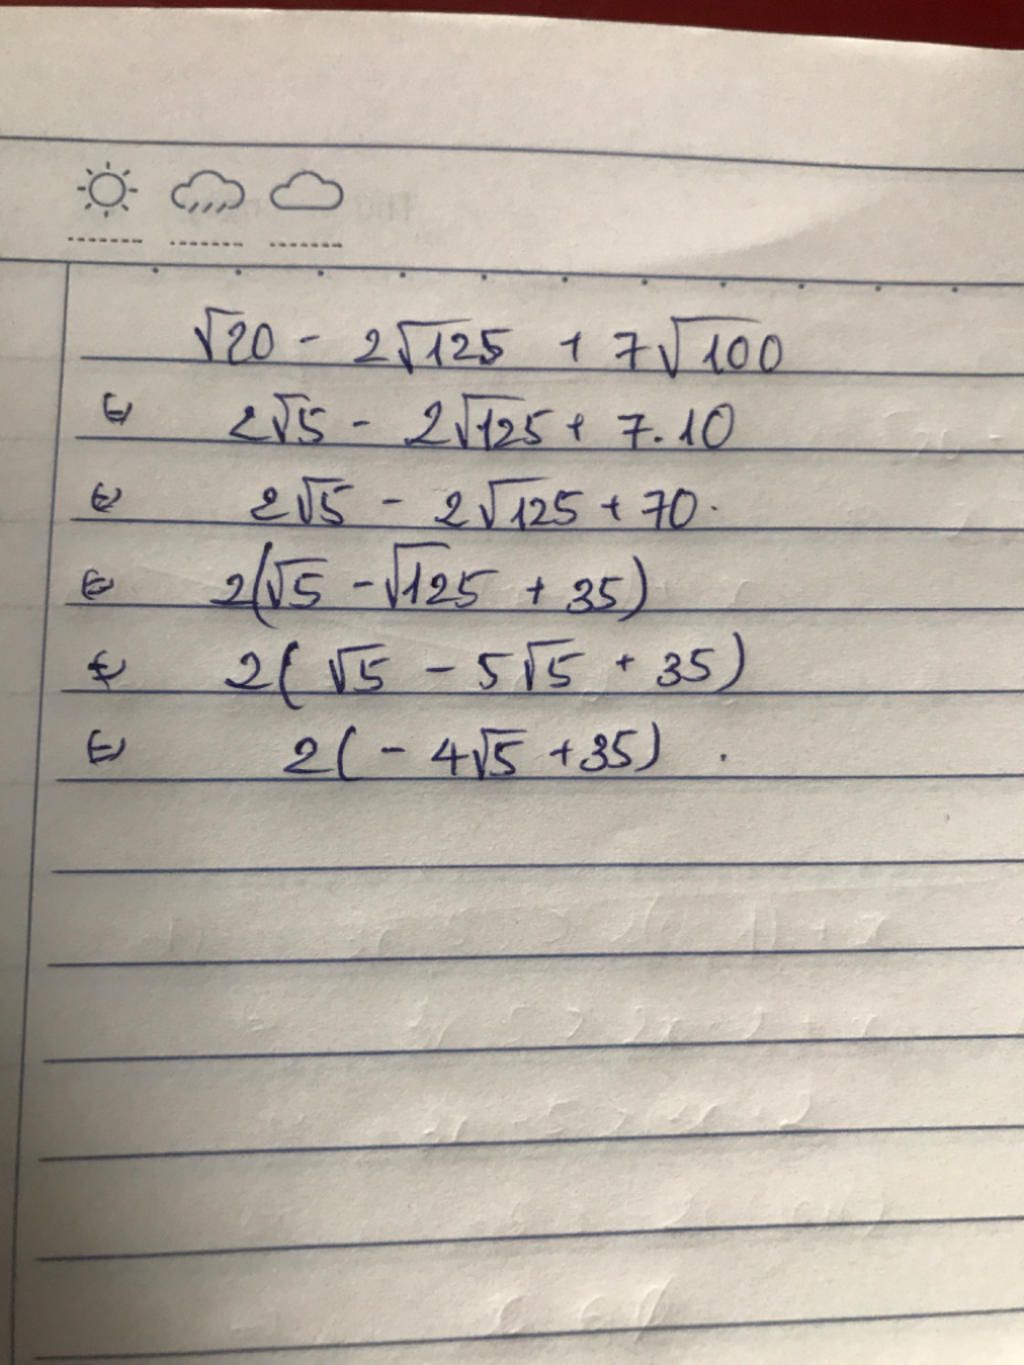 √20 - 2√125 + 7√100
⇔ 2√5 - 2√125 + 7.10
⇔ 2√5 - 2√125 + 70.
⇔ 2(√5 - √125 + 35)
⇔ 2(√5 - 5√5 + 35)
⇔ 2(- 4√5 + 35) .